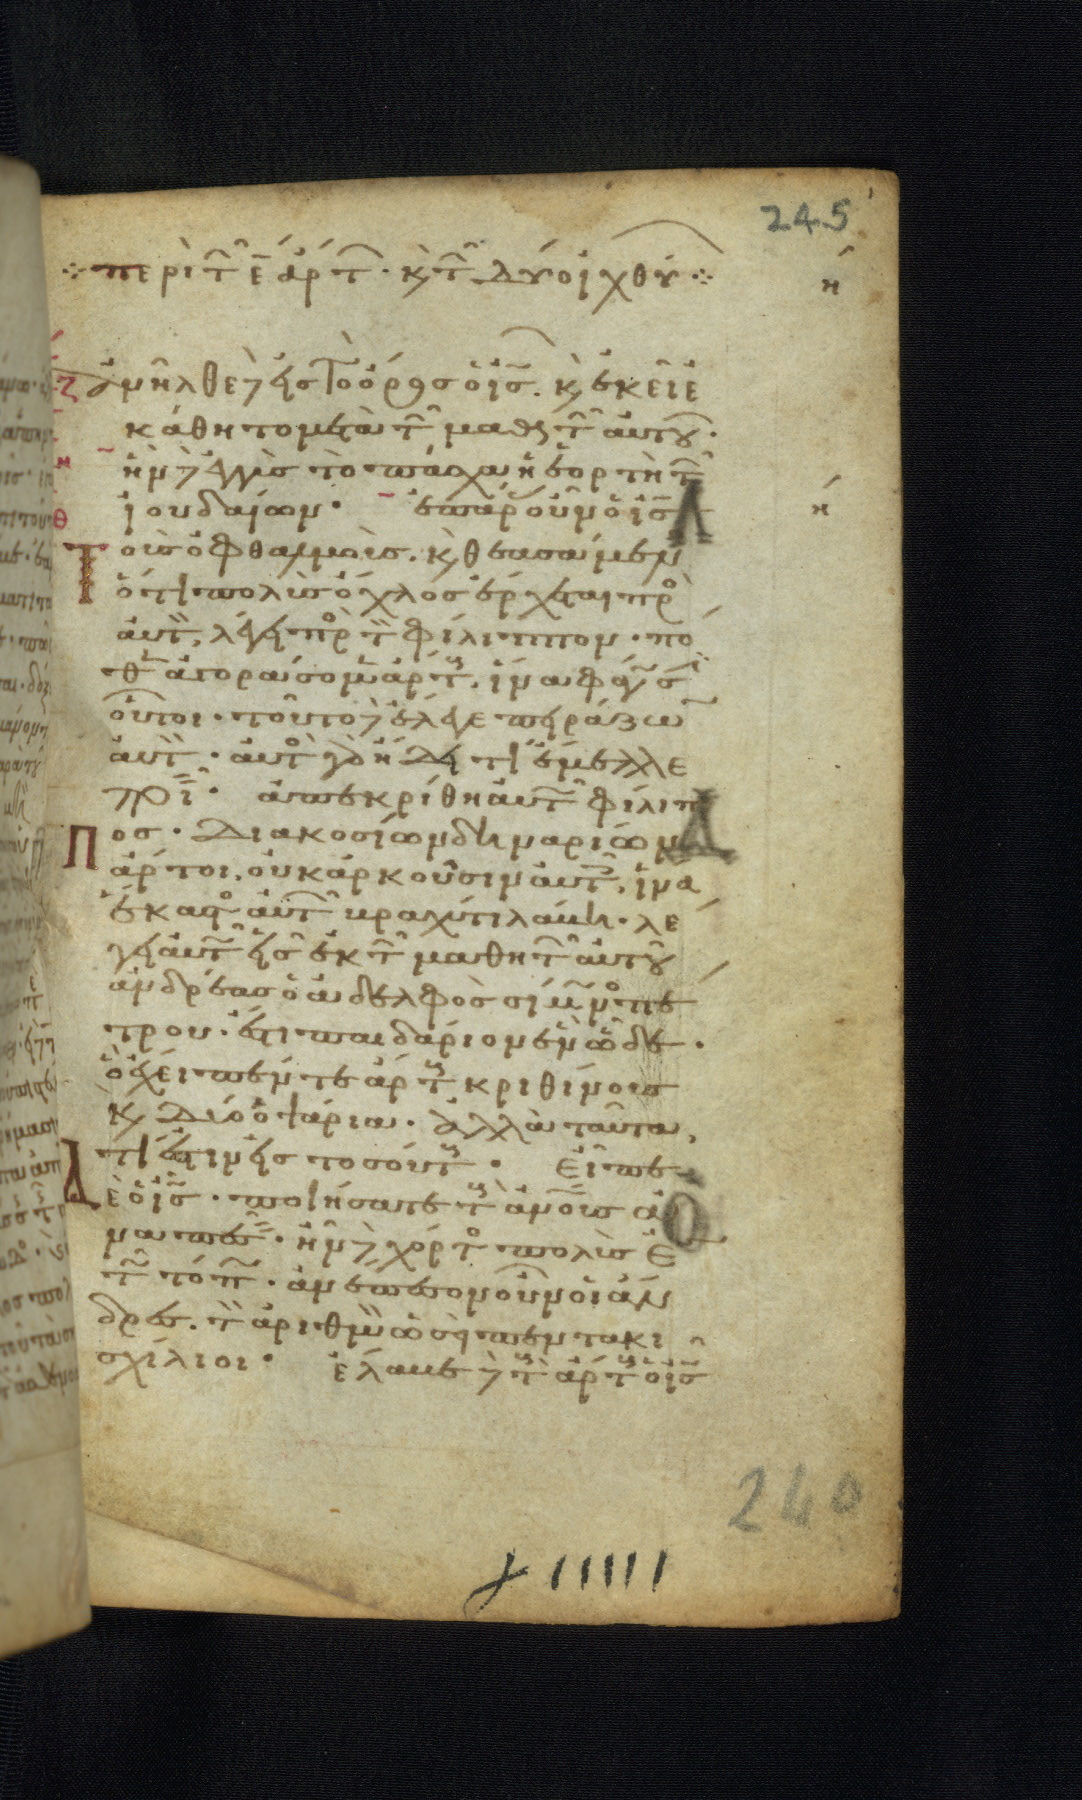 245
περὶ τῶν ε ἄρτ κ τῶν δύο ἰχθύ
η
ἀνῆλθε δὲ εἰς τὸ ὄρος ὁ ις κ ἐκεῖ ἐ
κάθητο μετὰ τῶν μαθητῶν αὐτοῦ
ἦν δὲ ἐγγὺς τὸ πάσχα ἡ ἑορτὴ τῶν
ἰουδαίων ἐπάρας οὖν ὁ ις
η
τοὺς ὀφθαλμοὺς κ θεασάμεν
ὅτι πολὺς ὄχλος ἔρχεται πρὸ
αὐτὸν λέγει πρὸς τὸν φίλιππον πό
θεν ἀγοράσομεν ἄρτους ἵνα φάγωσι
οὗτοι τοῦτο δὲ ἔλεγε πειράζων
αὐτὸν αὐτὸς γὰρ ἤδει τί ἔμελλε
ποιεῖν ἀπεκρίθη αὐτῶ φίλιπ
πος διακοσίων δηναρίων
ἄρτοι οὐκ ἀρκοῦσιν αὐτοῖς ἵνα
ἕκαστος αὐτῶν βραχύ τι λάβη λέ
γει αὐτῶ εἷς ἐκ τῶν μαθητῶν αὐτοῦ
ἀνδρέας ὁ ἀδελφὸς σίμωνος πέ
τρου ἔστι παιδάριον ἓν ὧδε
ὃ ἔχει πέντε ἄρτους κριθίνους
κ δύο ὀψάρια ἀλλὰ ταῦτα
τί ἐστιν εἰς τοσούτους εἶπε
δὲ ὁ ις ποιήσατε τοὺς ἀνους ἀ
ναπεσεῖν ἦν δὲ χόρτος πολὺς ἐ
τῶ τόπω ἀνέπεσον οὖν οἱ ἄν
δρες τὸν ἀριθμὸν ὡσεὶ πεντακι
σχίλιοι ἔλαβε δὲ τοὺς ἄρτους ὁ ις
240